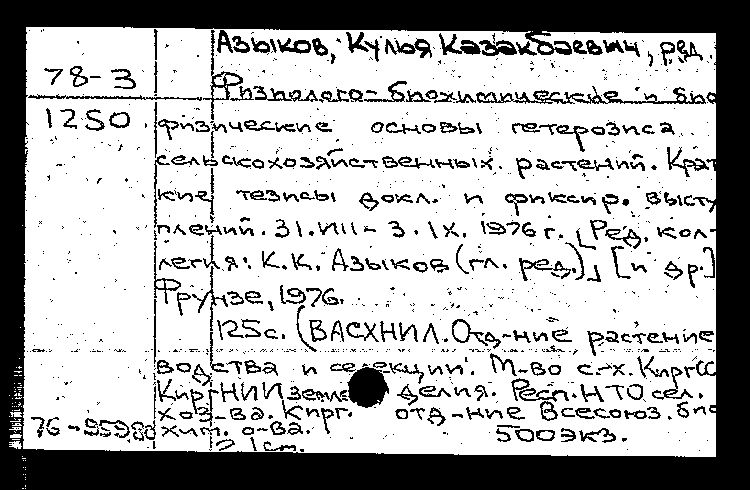 Азыков, Кулья Казакбаевич, ред.
78-3
Физиолого-биохимические и био
1250
физические основы гетерозиса
сельскохозяйственных растений. Крат
кие тезисы докл. и фиксир. высту
плений. 31.VIII - 3.IX. 1976 г. [Ред. кол-
легия: К.К. Азыков (гл. ред.)] [и др.]
Фрунзе, 1976.
125с. (ВАСХНИЛ. Отд-ние растение
водства и селекции. М-во с.-х. КиргСС
КиргНИИ земледелия. Респ. НТО сел.
хоз-ва. Кирг. отд-ние Всесоюз. био
76-95980 хим. о-ва. 500экз.
1 ст.